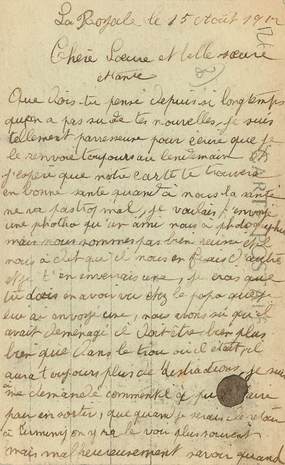 La Royale le 15 août 1912
Chère Sœure et belle sœure
et tante
Que dois-tu pensé depuis si longtemps
qu'on a pas su de tes nouvelles, je suis
tellement parresseuse pour écrire que je
le renvoie toujours au lendemain
j'espère que notre carte te trouvera
en bonne santé quand à nous la santé
ne va pas trop mal, je voulais t'envoyé
une photho qu'un ami nous a photographié
mais nous sommes pas bien réussi et il
nous a dit qu'il nous en ferais d'autre
et je t'en enverrais une, je crois que
tu dois en avoir vu chez le papa que je
lui ai envoyé une, nous avons su qu'il
avait deménagé il doit être bien plus
bien que dans le trou où il était, il
aura toujours plus de distractions, je suis
à me demandé comment il a pu faire
pour en sortir, que quand je serais de retour
à Firminy on ira le voir plus souvent
mais malheureusement savoir quand